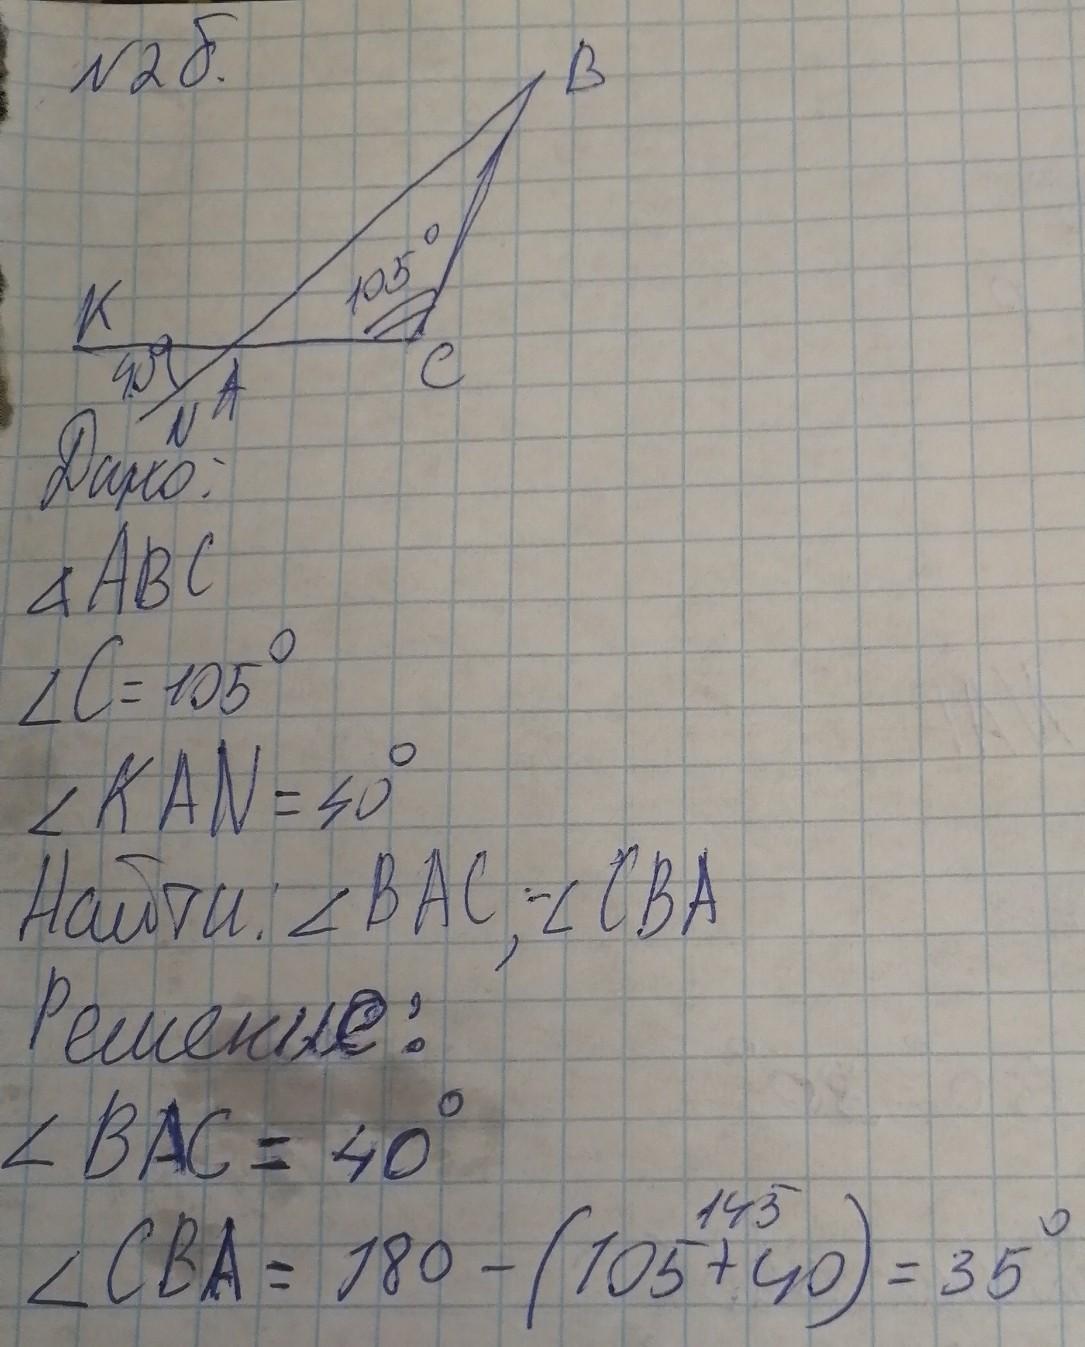 №2б.
B
105°
K
40
C
A
N
Дано:
∆ABC
∠C=105°
∠KAN=40°
Найти: ∠BAC, ∠CBA
Решение:
∠BAC = 40°
145
∠CBA = 180 - (105+40) = 35°